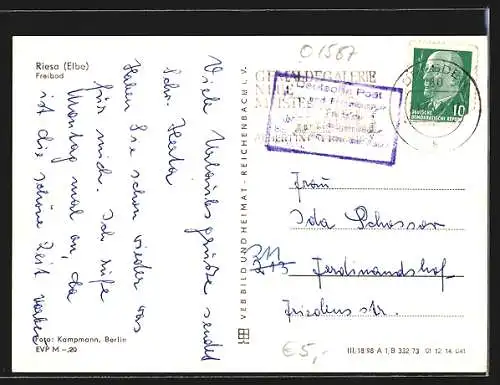 Riesa (Elbe)
Freibad
Viele Urlaubsgrüße sendet
Schw. Herta
Haben Sie schon wieder was
für mich. Ich rufe
Montag mal an, da
ist die schöne Zeit vorbei
Foto: Kampmann, Berlin
EVP M –.20
VEB BILD UND HEIMAT · REICHENBACH i. V.
01587
GEMÄLDEGALERIE
NEUE
MEISTER
Deutsche Post
DRESDEN
10
DEUTSCHE
DEMOKRATISCHE REPUBLIK
Frau
Ida Schosser
Ferdinandshof
Friedensstr.
€5,-
III/18/98 A 1/B 332/73 01 12 14 041